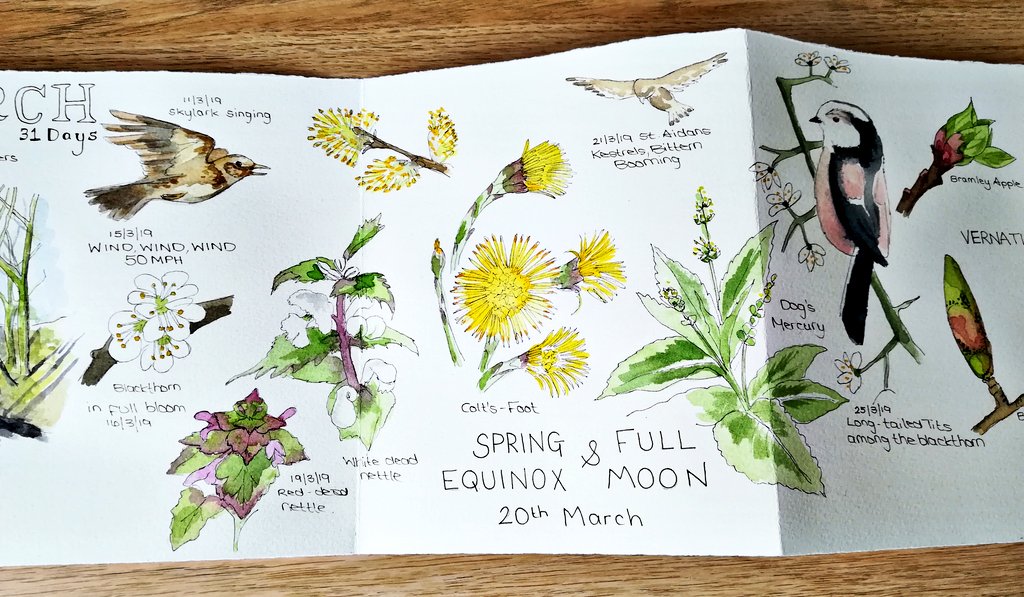 RCH
31 Days
ers
11/3/19
Skylark singing
15/3/19
WIND, WIND, WIND
50 MPH
Blackthorn
in full bloom
16/3/19
19/3/19
Red-dead
nettle.
White dead
nettle
Colt's-Foot
21/3/19 St. Aidans
Kestrels, Bittern
Booming
SPRING & FULL
EQUINOX MOON
20th March
Dog's
Mercury
25/3/19
Long-tailed Tits
among the blackthorn
Bramley Apple
VERNAT